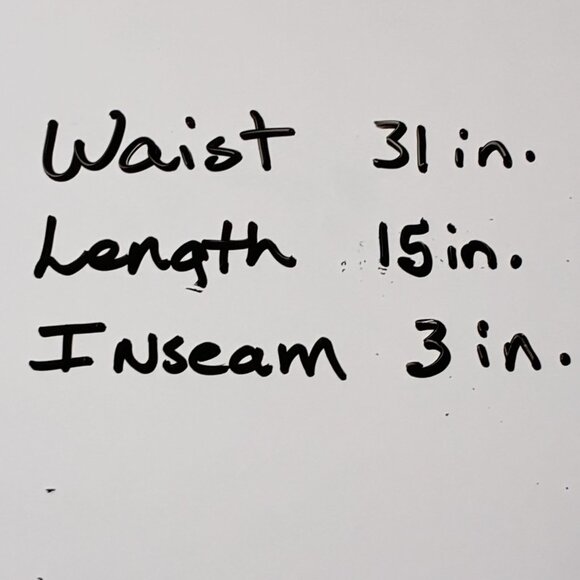 Waist 31 in.
Length 15 in.
Inseam 3 in.